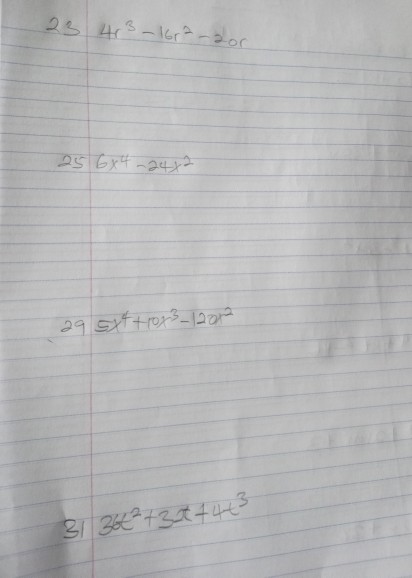 23 4r³ - 16r² - 20r
25 6x⁴ - 24x²
29 5x⁴ + 10x³ - 120x²
31 36t² + 32t + 4t³